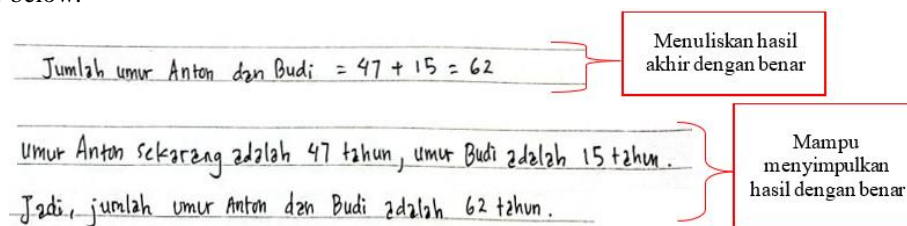 below.
Jumlah umur Anton dan Budi = 47 + 15 = 62
Menuliskan hasil
akhir dengan benar
Umur Anton sekarang adalah 47 tahun, umur Budi adalah 15 tahun.
Jadi, jumlah umur Anton dan Budi adalah 62 tahun.
Mampu
menyimpulkan
hasil dengan benar